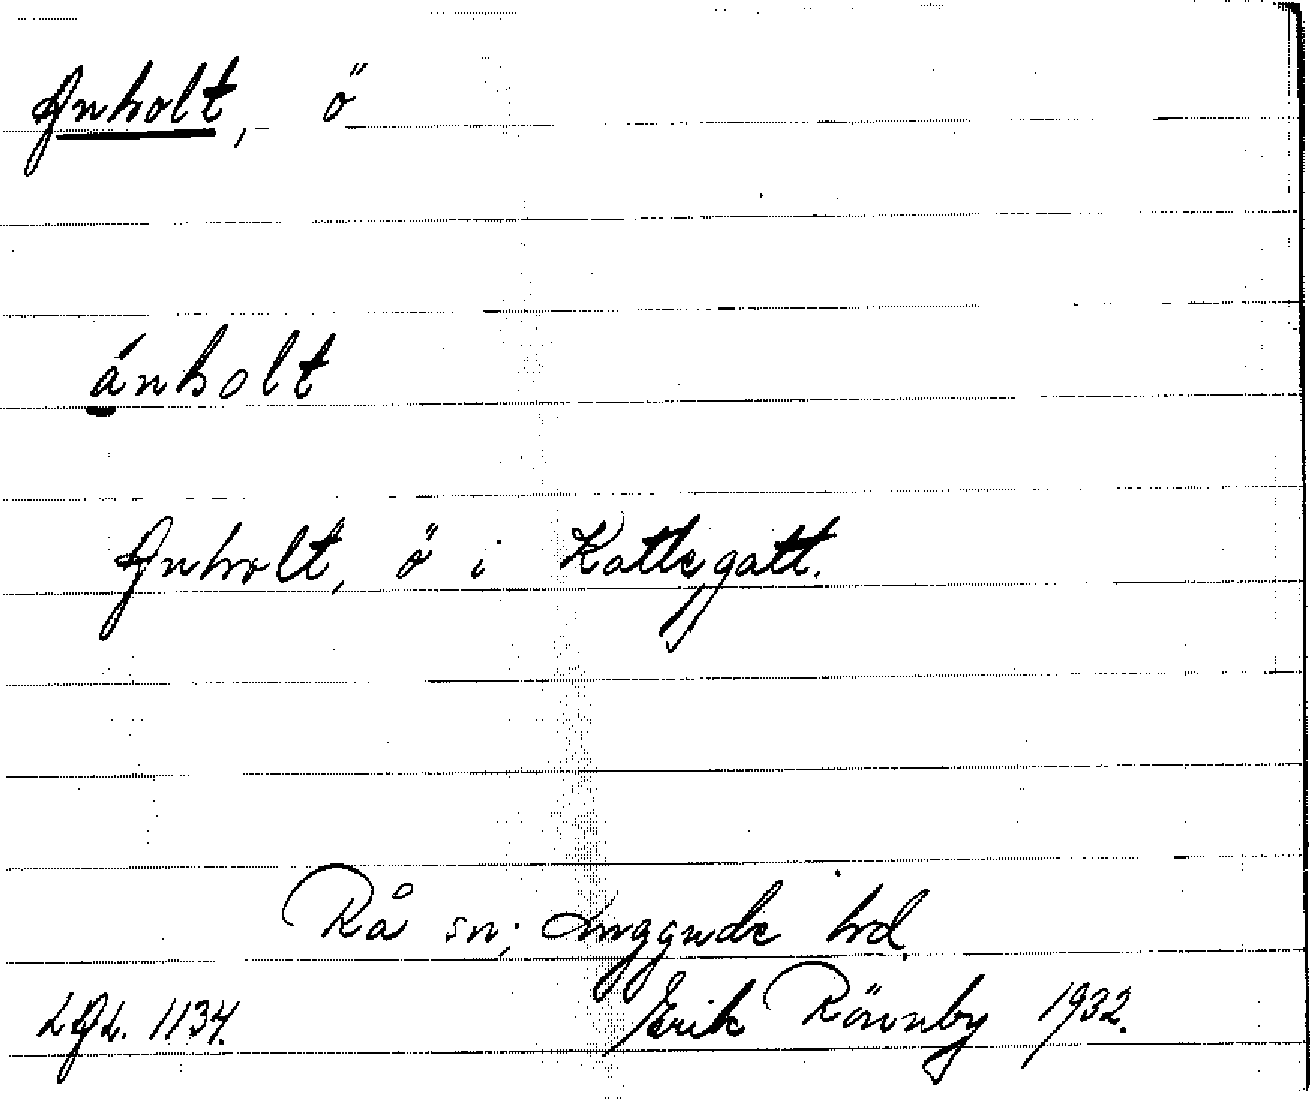 Anholt, ö
ánholt
Anholt, ö i Kattegatt.
Rå sn; Luggude hd.
LAL. 1134. Erik Rönnby 1932.